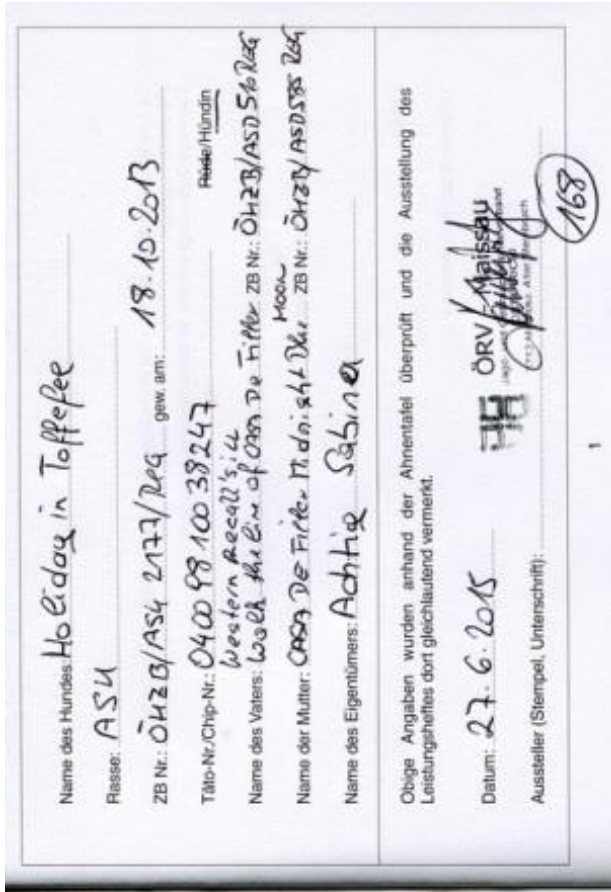 Name des Hundes: Holiday in Toffefee
Rasse: ASH
ZB Nr.: ÖHZB/ASH 2177/Reg gew. am: 18.10.2013
Täto-Nr./Chip-Nr.: 0400 98 100 38247 Rüde/Hündin
Western Recall's
Name des Vaters: walk the line of CASA De Fitter ZB Nr.: ÖHZB/ASD 516 REG
Moon
Name der Mutter: CASA De Fitter Midnight Blue ZB Nr.: ÖHZB/ASD 585 REG
Name des Eigentümers: Achtig Sabine
Obige Angaben wurden anhand der Ahnentafel überprüft und die Ausstellung des
Leistungsheftes dort gleichlautend vermerkt.
Datum: 27.6.2015
ÖRV Maissau
Aussteller (Stempel, Unterschrift):
168
1